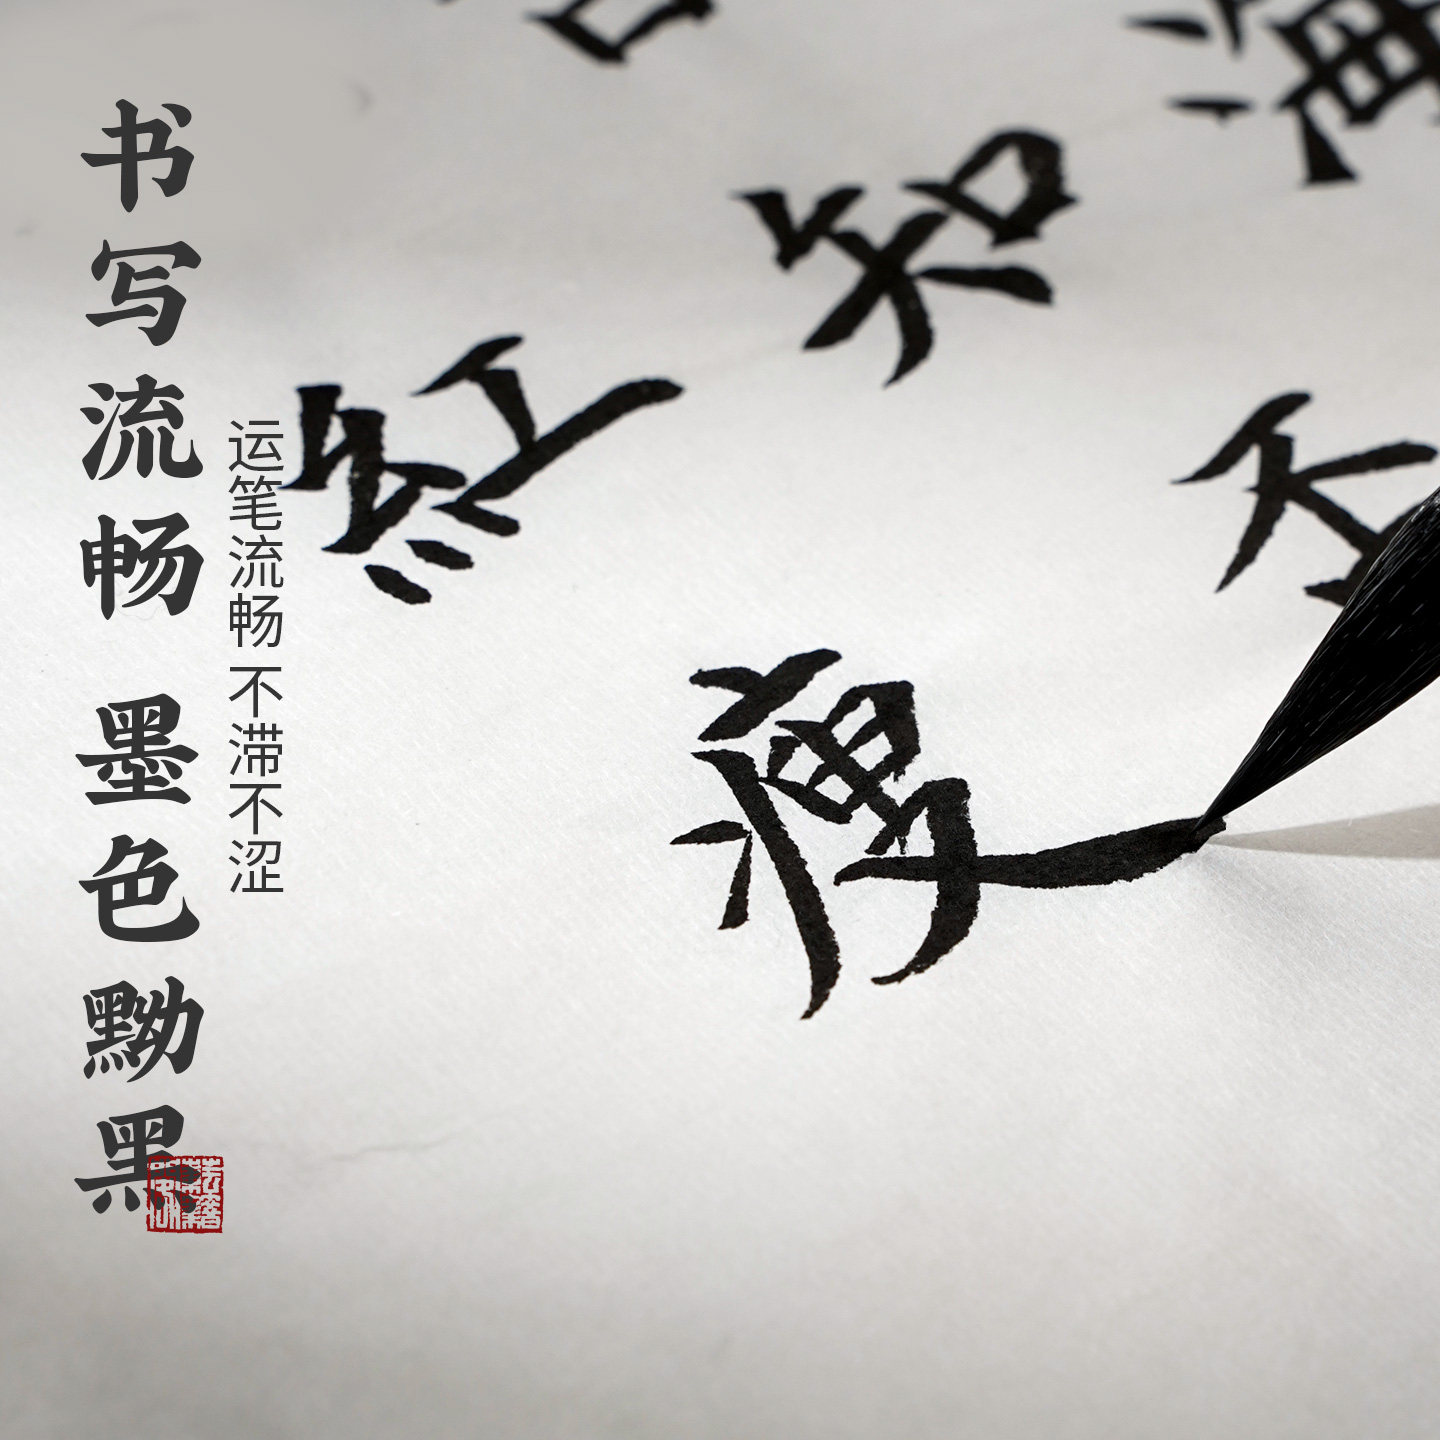 书写流畅 墨色黝黑
运笔流畅 不滞不涩
海
知
紅瘦